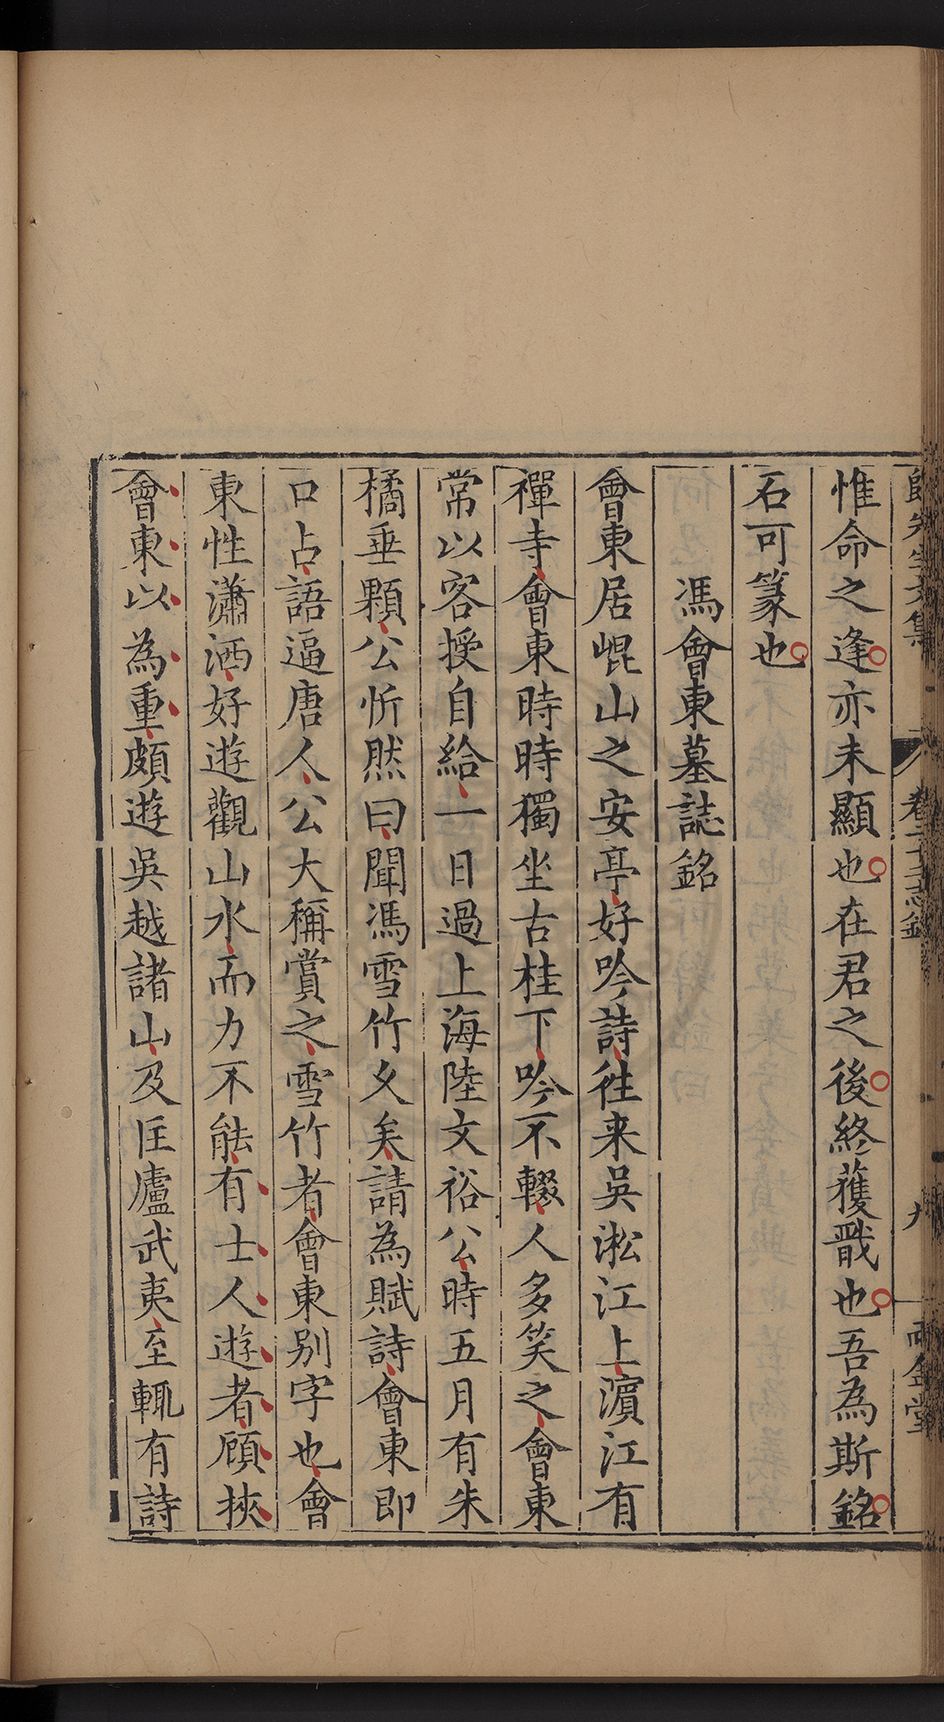 惟命之逢亦未顯也在君之後終獲戬也吾為斯銘
石可篆也
馮會東墓誌銘
會東居崐山之安亭好吟詩徃来吳淞江上濵江有
禪寺會東時時獨坐古桂下吟不輟人多笑之會東
常以客授自給一日過上海陸文裕公時五月有朱
橘垂顆公忻然曰聞馮雪竹久矣請為賦詩會東即
口占語逼唐人公大稱賞之雪竹者會東别字也會
東性瀟洒好遊觀山水而力不能有士人遊者頋挾
會東以為重頗遊吳越諸山及匡廬武夷至輒有詩